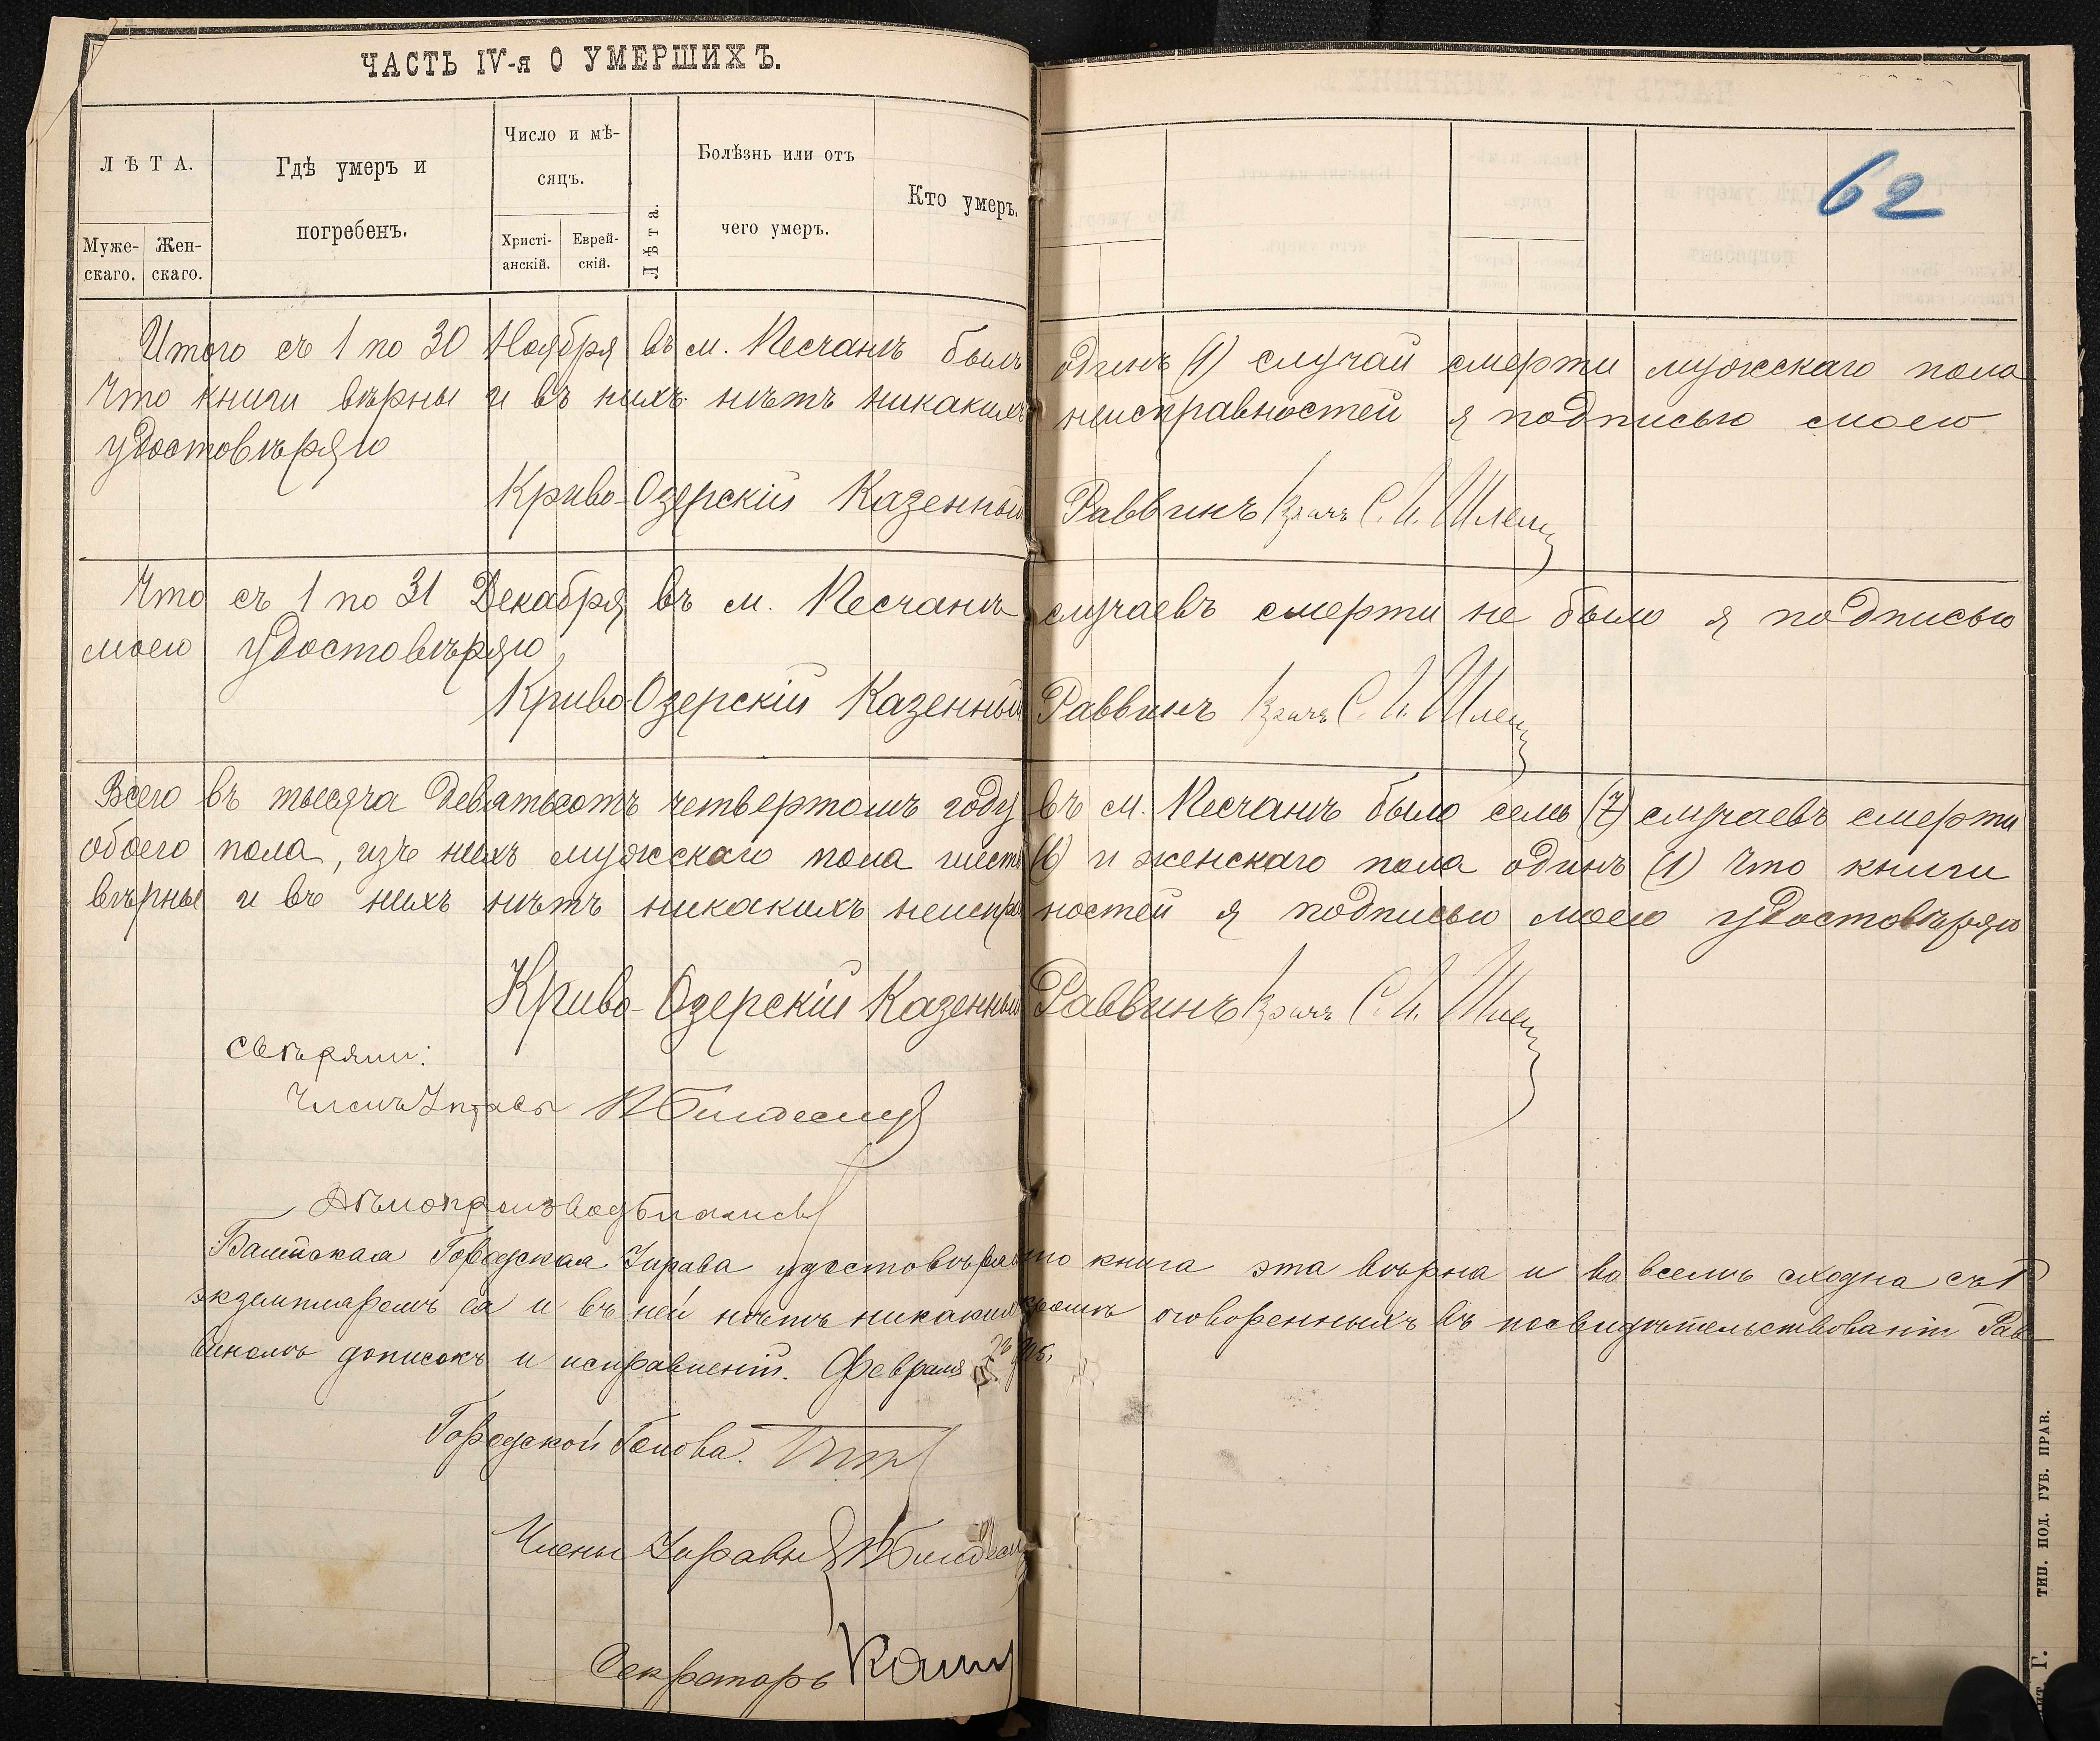 ЧАСТЬ IV-я О УМЕРШИХЪ.
62
ЛѢТА.
Мужескаго.
Женскаго.
Гдѣ умеръ и
погребенъ.
Число и мѣ-
сяцъ.
Христі-
анскій.
Еврей-
скій.
Лѣта.
Болѣзнь или отъ
чего умеръ.
Кто умеръ.
Итого съ 1 по 30 Ноября въ м. Песчанѣ былъ одинъ (1) случай смерти мужскаго пола
Что книги вѣрны и въ нихъ нѣтъ никакихъ неисправностей я подписью моею
удостовѣряю
Криво-Озерскій Казенный Раввинъ Врачъ С. И.
Что съ 1 по 31 Декабря въ м. Песчанѣ случаевъ смерти не было я подписью
моею удостовѣряю
Криво-Озерскій Казенный Раввинъ Врачъ С. И.
Всего въ тысяча девятьсотъ четвертомъ году въ м. Песчанѣ было семь (7) случаевъ смерти
обоего пола, изъ нихъ мужскаго пола шесть (6) и женскаго пола одинъ (1) Что книги
вѣрны и въ нихъ нѣтъ никакихъ неисправностей я подписью моею удостовѣряю
Криво-Озерскій Казенный Раввинъ Врачъ С. И.
Свѣряли:
Членъ Управы
Дѣлопроизвод
Балтская Городская Управа удостовѣряетъ что книга эта вѣрна и во всемъ сходна съ
экземпляромъ ея и въ ней нѣтъ никакихъ кромѣ оговоренныхъ въ засвидѣтельствованіи Рав-
виномъ дописокъ и исправленій. Февраля 23 905.
Городской Голова.
Члены Управы
Секретарь
ТИП. ПОД. ГУБ. ПРАВ.